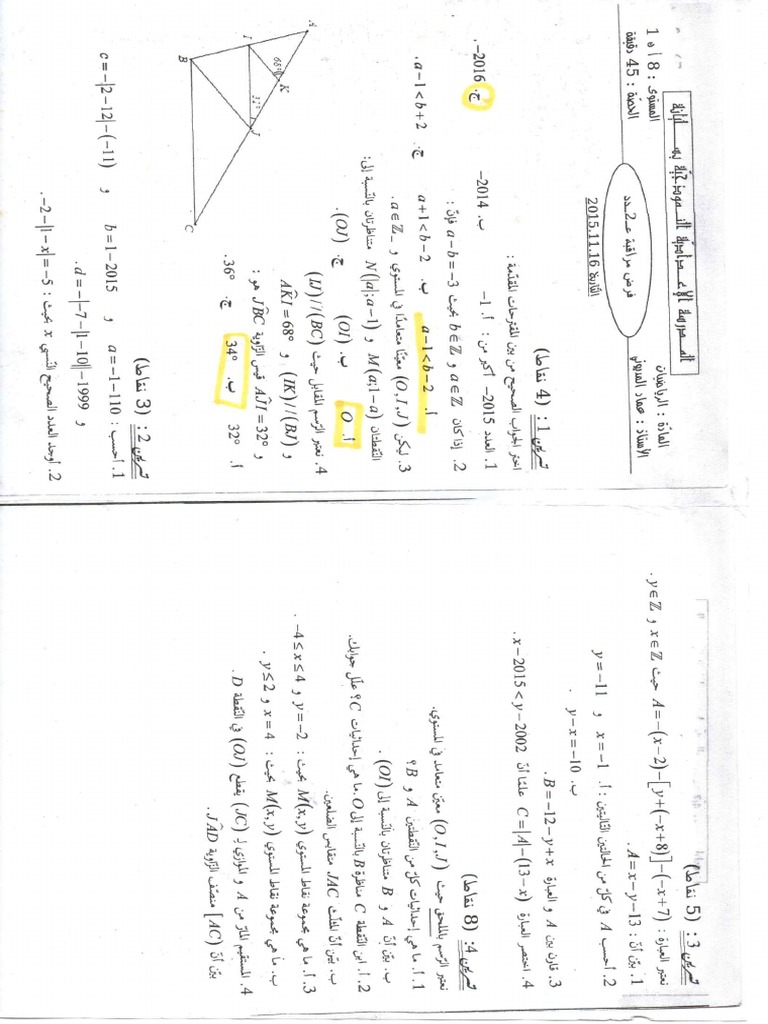 المـــدرسة الإعـــدادية النـــموذجيّة بـ
المستوى : 8 أ ه 1
الحصّة : 45 دقيقة
فرض مراقبة عـ2ـدد
التّاريخ: 2015.11.16
المادّة : الرياضيات
الأستاذ : عماد المديوني
تمرين 1 : (4 نقاط)
اختر الجواب الصحيح من بين المقترحات المقدّمة :
1. العدد 2015− أكبر من : أ. 1− ب. 2014− ج. 2016−.
2. إذا كان a∈ℤ و b∈ℤ بحيث a−b=−3 فإنّ :
أ. a−1<b−2 ب. a+1<b−2 ج. a−1<b+2.
3. ليكن (O,I,J) معيّنا متعامدًا في المستوي و a∈ℤ₋.
النّقطتان M(a;1−a) و N(|a|;a−1) متناظرتان بالنّسبة إلى:
أ. O ب. (OI) ج. (OJ).
4. نعتبر الرّسم المقابل حيث (IJ)//(BC)
و (IK)//(BJ) و AK̂I=68°
و AĴI=32° قيس الزّاوية JB̂C هو :
أ. 32° ب. 34° ج. 36°.
A
I
K
68°
32°
J
B
C
تمرين 2 : (3 نقاط)
1. أحسب : a=−1−110 و b=1−2015 و c=−|2−12|−(−11)
و d=−|−7−|1−10||−1999.
2. أوجد العدد الصحيح النّسبي x بحيث : −2−|1−x|=−5.
تمرين 3 : (5 نقاط)
نعتبر العبارة : A=−(x−2)−[y+(−x+8)]−(−x+7) حيث x∈ℤ و y∈ℤ.
1. بيّن أنّ : A=x−y−13.
2. أحسب A في كلّ من الحالتين التّاليتين : أ. x=−1 و y=−11
ب. y−x=−10.
3. قارن بين A و العبارة B=−12−y+x.
4. اختصر العبارة C=|A|−(13−x) علمًا أنّ x−2015<y−2002.
تمرين 4 : (8 نقاط)
نعتبر الرّسم بالملحق حيث (O,I,J) معيّن متعامد في المستوي.
1. أ. ما هي إحداثيات كلّ من النّقطتين A و B ؟
ب. بيّن أنّ A و B متناظرتان بالنّسبة إلى (OI).
2. أ. ابن النّقطة C مناظرة B بالنّسبة إلى O. ما هي إحداثيات C ؟ علّل جوابك.
ب. بيّن أنّ المثلّث JAC متقايس الضلعين.
3. أ. ما هي مجموعة نقاط المستوي M(x,y) بحيث : y=−2 و −4≤x≤4.
ب. ما هي مجموعة نقاط المستوي M(x,y) بحيث : x=4 و y≤2.
4. المستقيم المارّ من A و الموازي لـ (JC) يقطع (OJ) في النّقطة D.
بيّن أنّ [AC) منصّف الزّاوية JÂD.